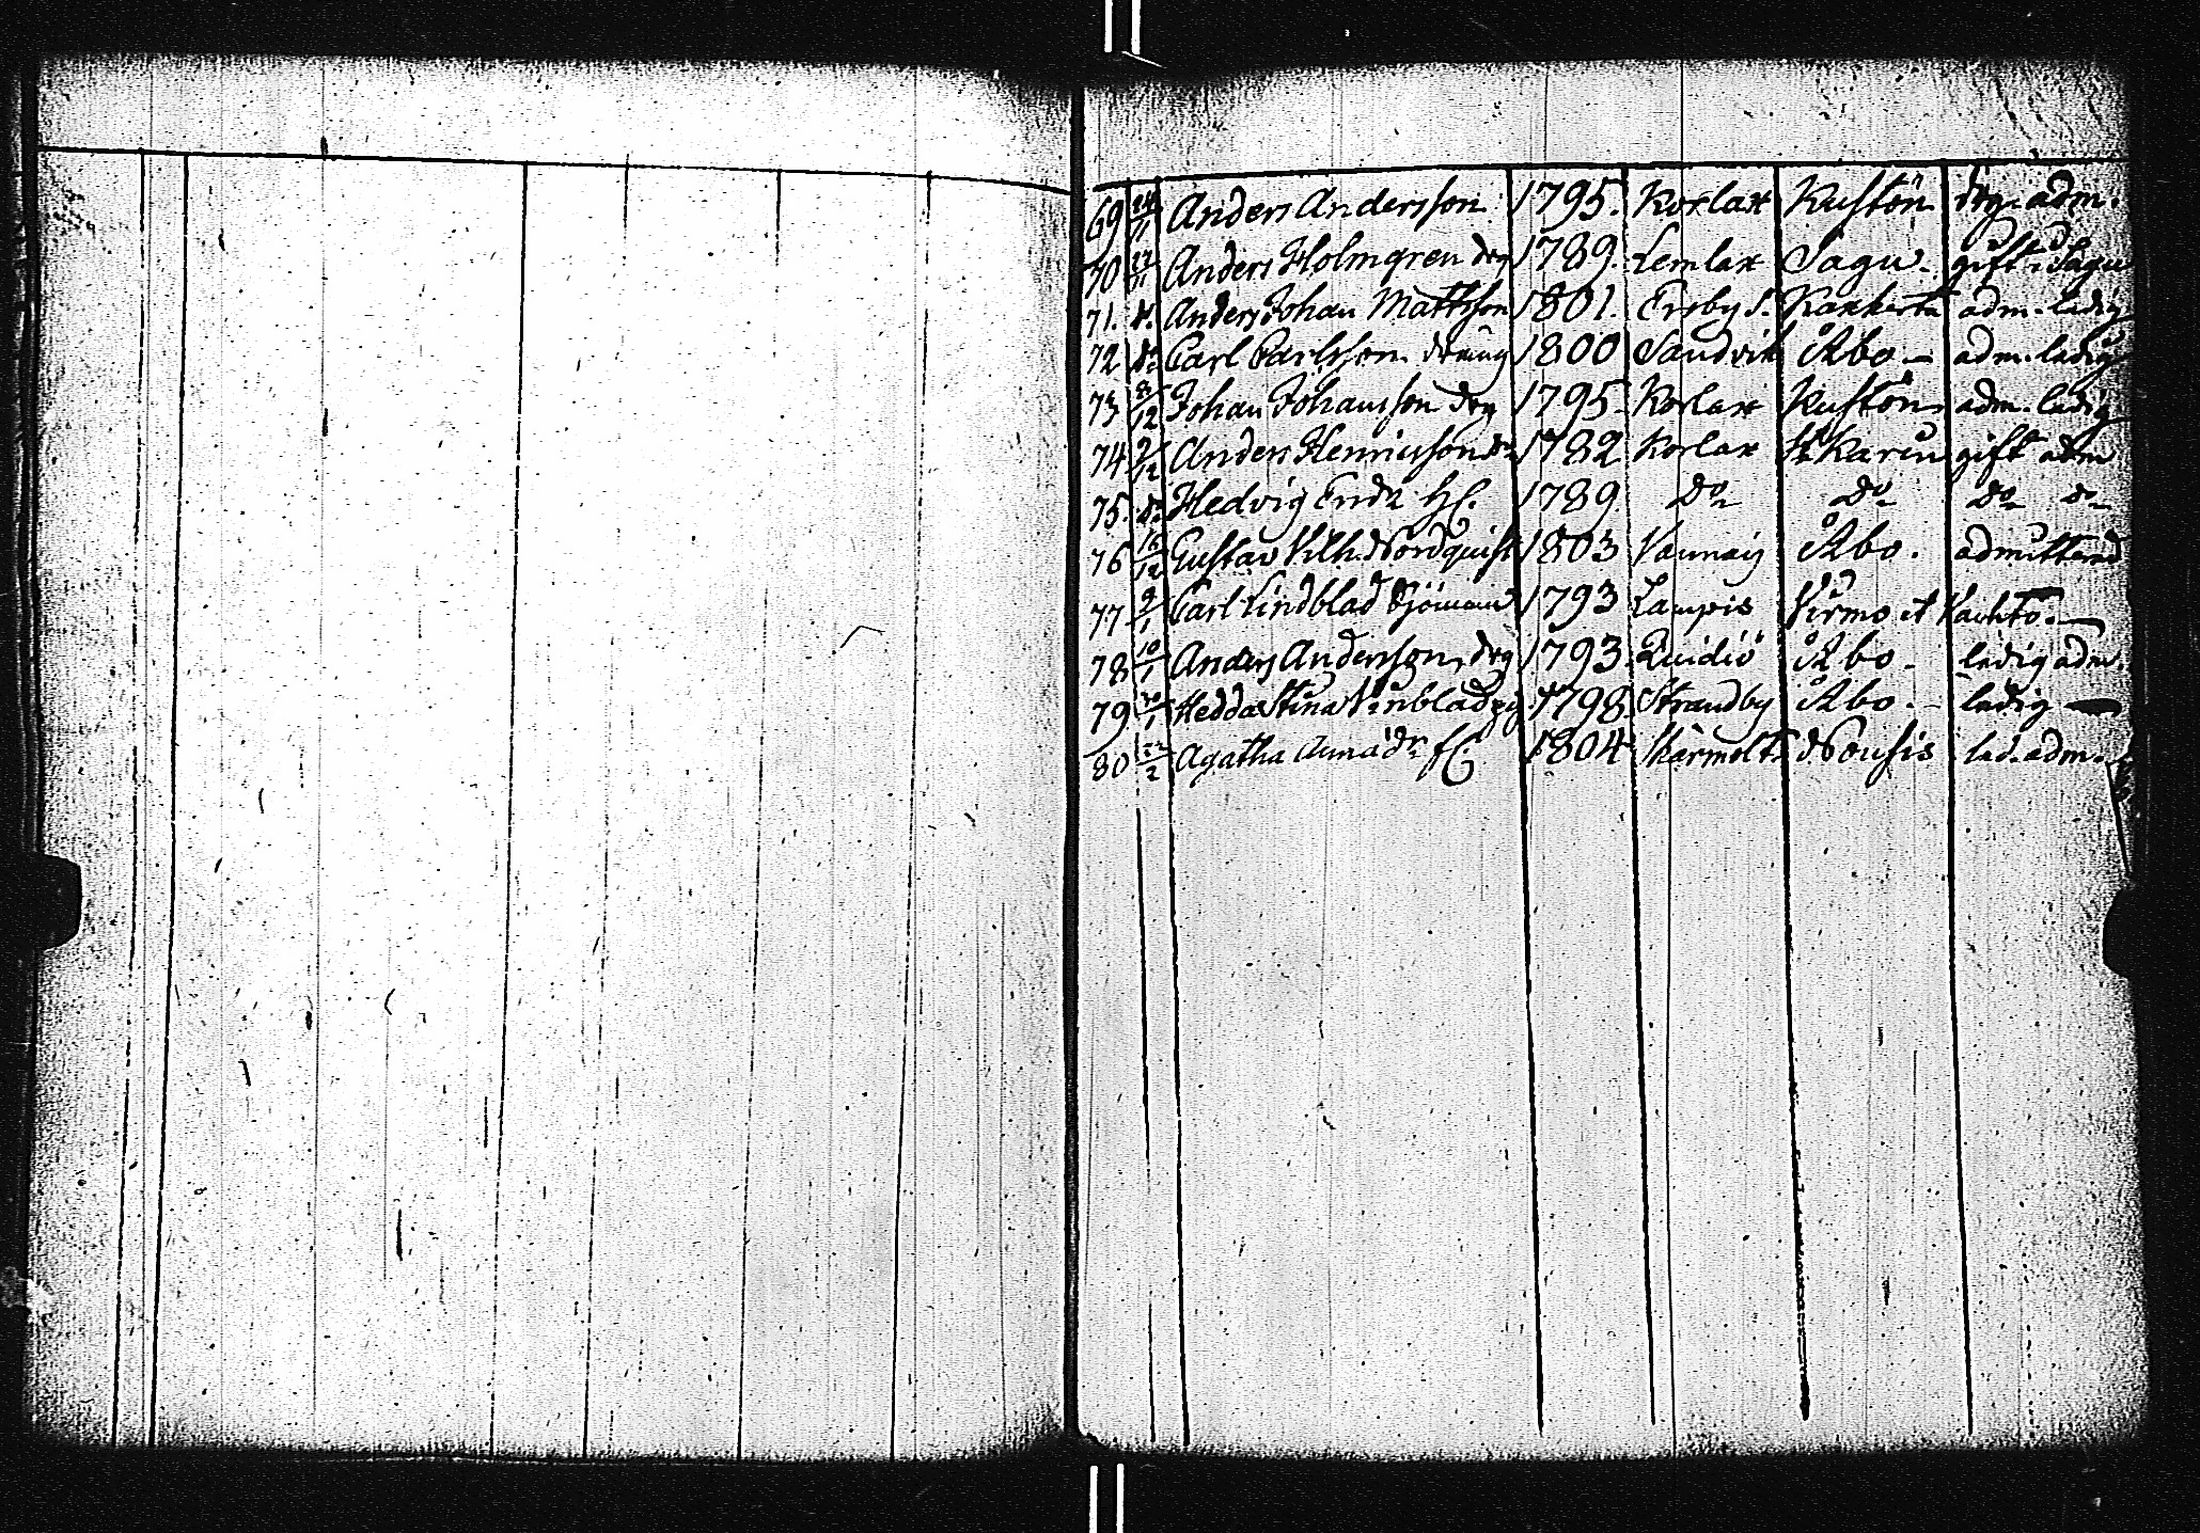 69 24/11 Anders Andersson 1795. Korlax Kustön drg. adm.
70 27/11 Anders Holmgren drg 1789. Lemlax Sagu. gift i Sagu
71. do. Anders Johan Mattsson 1801. Ersby S. Kakkerta adm. ledig
72 do Carl Carlsson dräng 1800 Sandvik Åbo adm. ledig
73 8/12 Johan Johansson drg 1795 Korlax Kustön adm. ledig
74 9/12 Anders Henricsson 1782 Korlax St Karin gift adm
75. do Hedvig Ersdr H. 1789 do do do do
76 16/12 Gustav Vilh. Nordquist 1803 Åbo. admitterad
77 9/1 Carl Lindblad Sjöman 1793 Lampis Virmo et
78 10/1 Anders Andersson, drg 1793. Qvidiö Åbo ledig adm.
79 20/1 Hedda Stina Vinblad pig 1798. Strandby Åbo. ledig
80 22/2 Agatha Annadr 1804 Nousis led. adm.